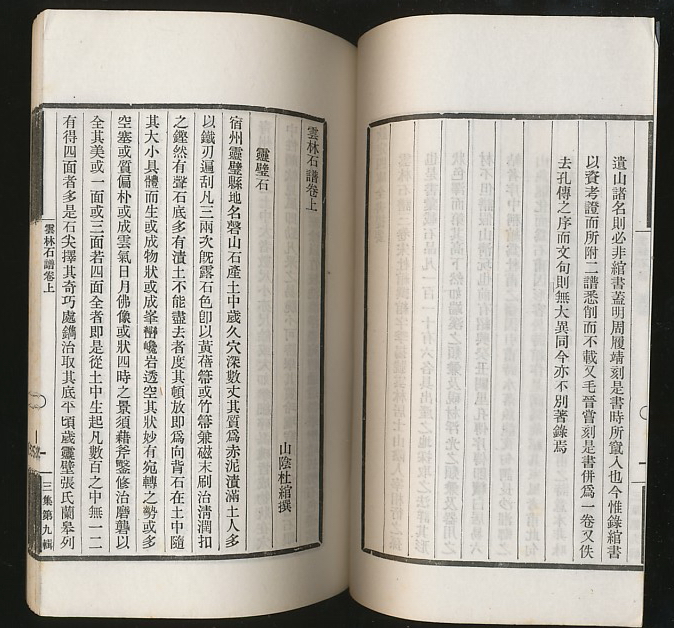 遺山諸名則必非綰書蓋明周履靖刻是書時所竄入也今惟錄綰書
以資考證而所附二譜悉削而不載又毛晉嘗刻是書併爲一卷又佚
去孔傳之序而文句則無大異同今亦不別著錄焉
雲林石譜卷上
山陰杜綰撰
靈璧石
宿州靈璧縣地名磬山石產土中歲久穴深數丈其質爲赤泥漬滿土人多
以鐵刃遍刮凡三兩次旣露石色卽以黃蓓箒或竹箒兼磁末刷治淸潤扣
之鏗然有聲石底多有漬土不能盡去者度其頓放卽爲向背石在土中隨
其大小具體而生或成物狀或成峯巒巉岩透空其狀妙有宛轉之勢或多
空塞或質偏朴或成雲氣日月佛像或狀四時之景須藉斧鑿修治磨礲以
全其美或一面或三面若四面全者卽是從土中生起凡數百之中無一二
有得四面者多是石尖擇其奇巧處鐫治取其底平頃歲靈璧張氏蘭皋列
雲林石譜卷上
三集第九輯